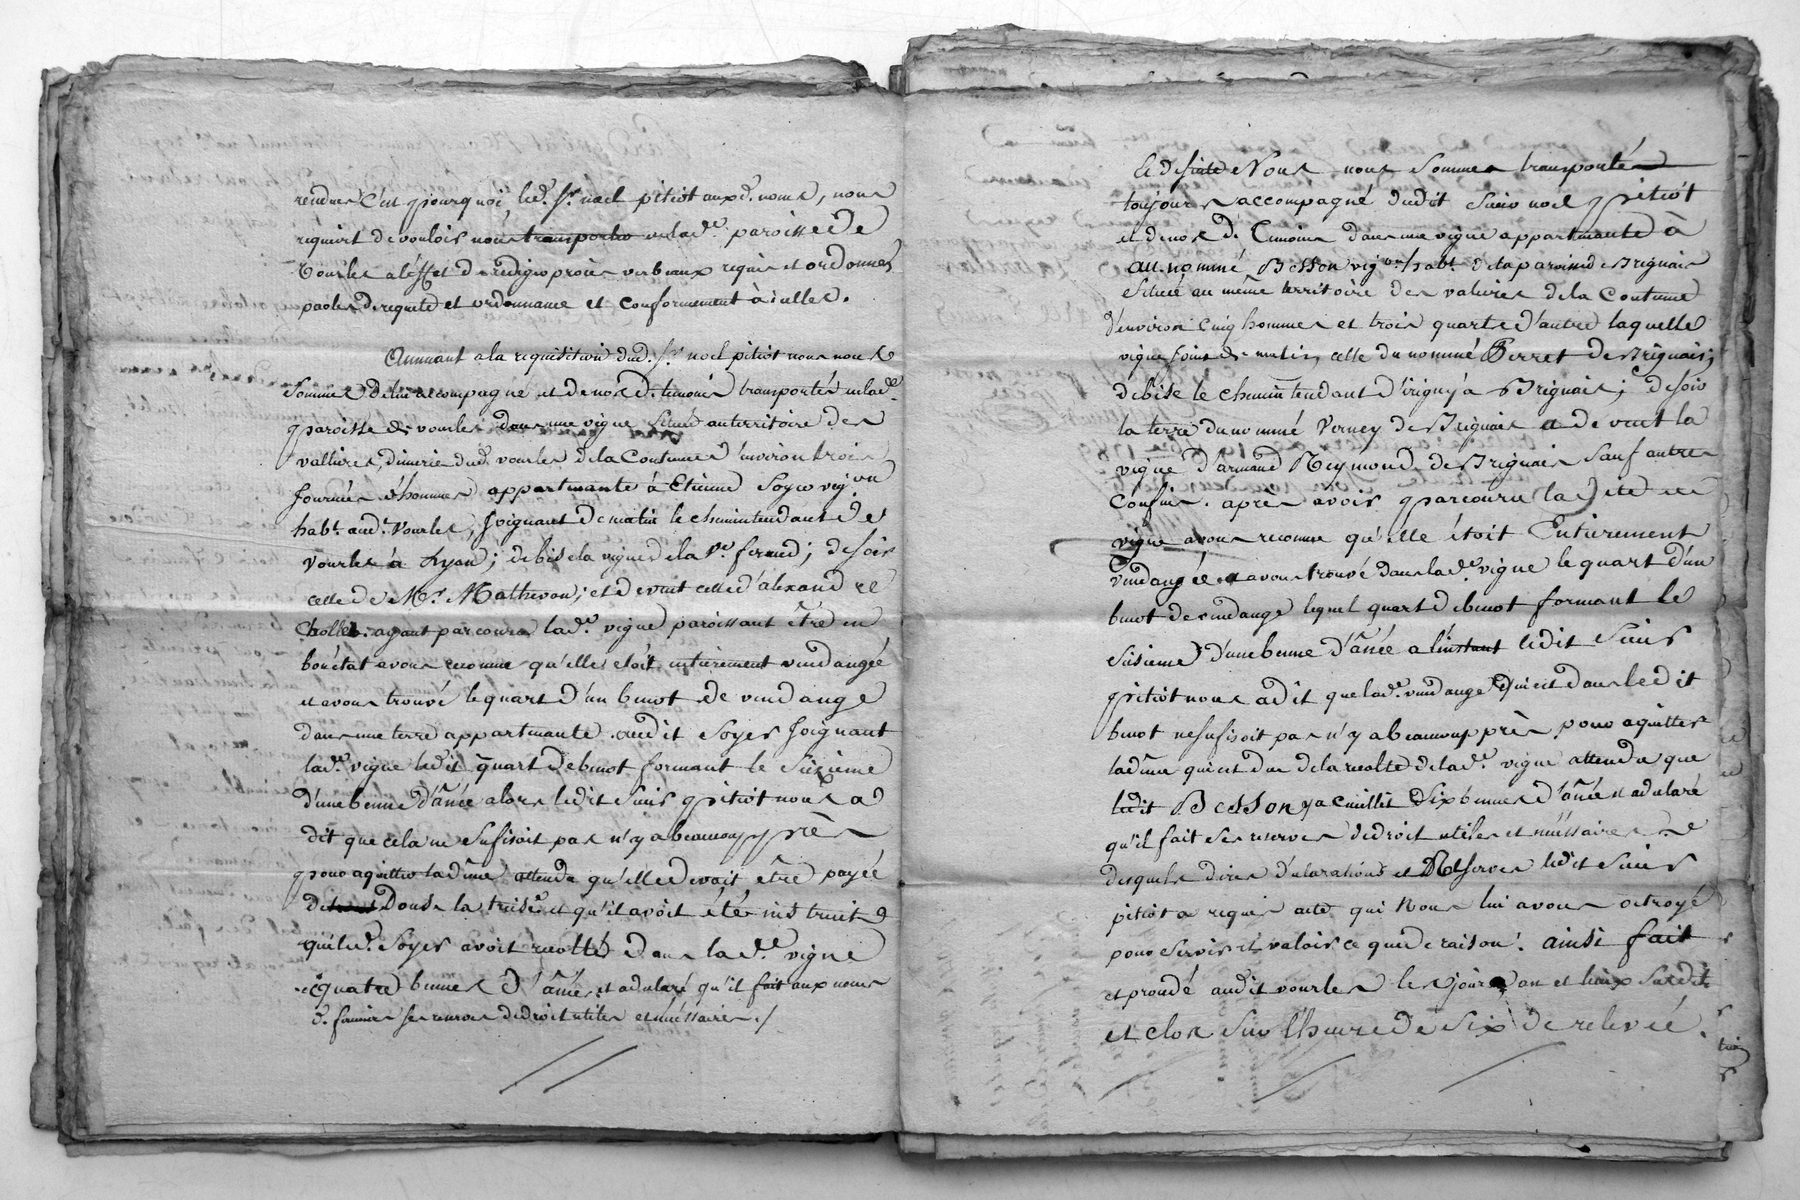 rendues C'est pourquoi, led. Sr. noel pitiot auxd. noms, nous
requiert de vouloir nous transporter en lad.e paroisse de
vourles à l'effet de rediger procès verbeaux requis et ordonnés
par les de requete et ordonnance et conformement à icelles.
Annuant a la requisition dud. Sr. noel pitiot nous nous
sommes de lui accompagné et de nosd. temoins transportés en lad.e
paroisse de vourles dans une vigne située au territoire des
vallieres, dimerie dud. vourles de la Contenue d'environ trois
journées d'hommes appartenante à Etienne Soyer vig.on
hab.t aud. Vourles, joignant de matin le chemin tendant de
vourles à Lyon; de bise la vigne de la Ve. ferrud; de soir
celle de Mr. Mathevon; et de vent celle d'alexandre
Chollet. ayant parcouru lad.e vigne paroissant être en
bon état avons reconnu qu'elle étoit entierement vendangée
et avons trouvé le quart d'un benot de vendange
dans une terre appartenante audit Soyer joignant
lad.e vigne ledit quart de benot formant le sixieme
d'une benne d'ânée alors ledit Sieur pitiot nous a
dit que cela ne sufisoit pas n'y a beaucoup près
pour aquitter la dîme attendu qu'elle devoit être payée
de Douse la treise.e et qu'il avoit été instruit
que led. Soyer avoit recolté dans lad.e vigne
quatre bennes d'ânée, et a declaré qu'il fait aux noms
d. fermier ses reserves de droit utiles et nécessaires./
Et de suite Nous nous sommes transporté
toujours accompagné dudit Sieur noel pitiot
et de nosd. Temoins dans une vigne appartenante à
au nommé Besson vig.on hab.t de la paroisse de Brignais
Située au même territoire des valieres de la Contenue
d'environ cinq hommes et trois quarts d'autre laquelle
vigne joint de matin, celle du nommé Perret de Brignais;
de bise le chemin tendant d'irigny à Brignais; de soir
la terre du nommé Verney de Brignais et de vent la
vigne d'armand Reymond de Brignais Sauf autres
Confins. après avoir parcouru la dite
vigne avons reconnu qu'elle étoit Entierement
vendangée et avons trouvé dans lad.e vigne le quart d'un
benot de vendange lequel quart de benot formant le
sisieme d'une benne d'ânée a l'instant ledit Sieur
pitiot nous a dit que lad.e vendange qui est dans ledit
benot ne sufisoit pas n'y a beaucoup près pour aquitter
la dîme qui est due de la recolte de lad.e vigne attendu que
ledit Besson y a cueillit dix bennes d'ânée et a declaré
qu'il fait ses reserves de droit utiles et nécessaires
desquels dires declarations et Reserves ledit Sieur
pitiot a requis acte qui Nous lui avons octroyé
pour servir et valoir ce que de raison. ainsi fait
et procedé audit vourles les jour, an et lieux susdit
et clos sur l'heure de six de relevée.